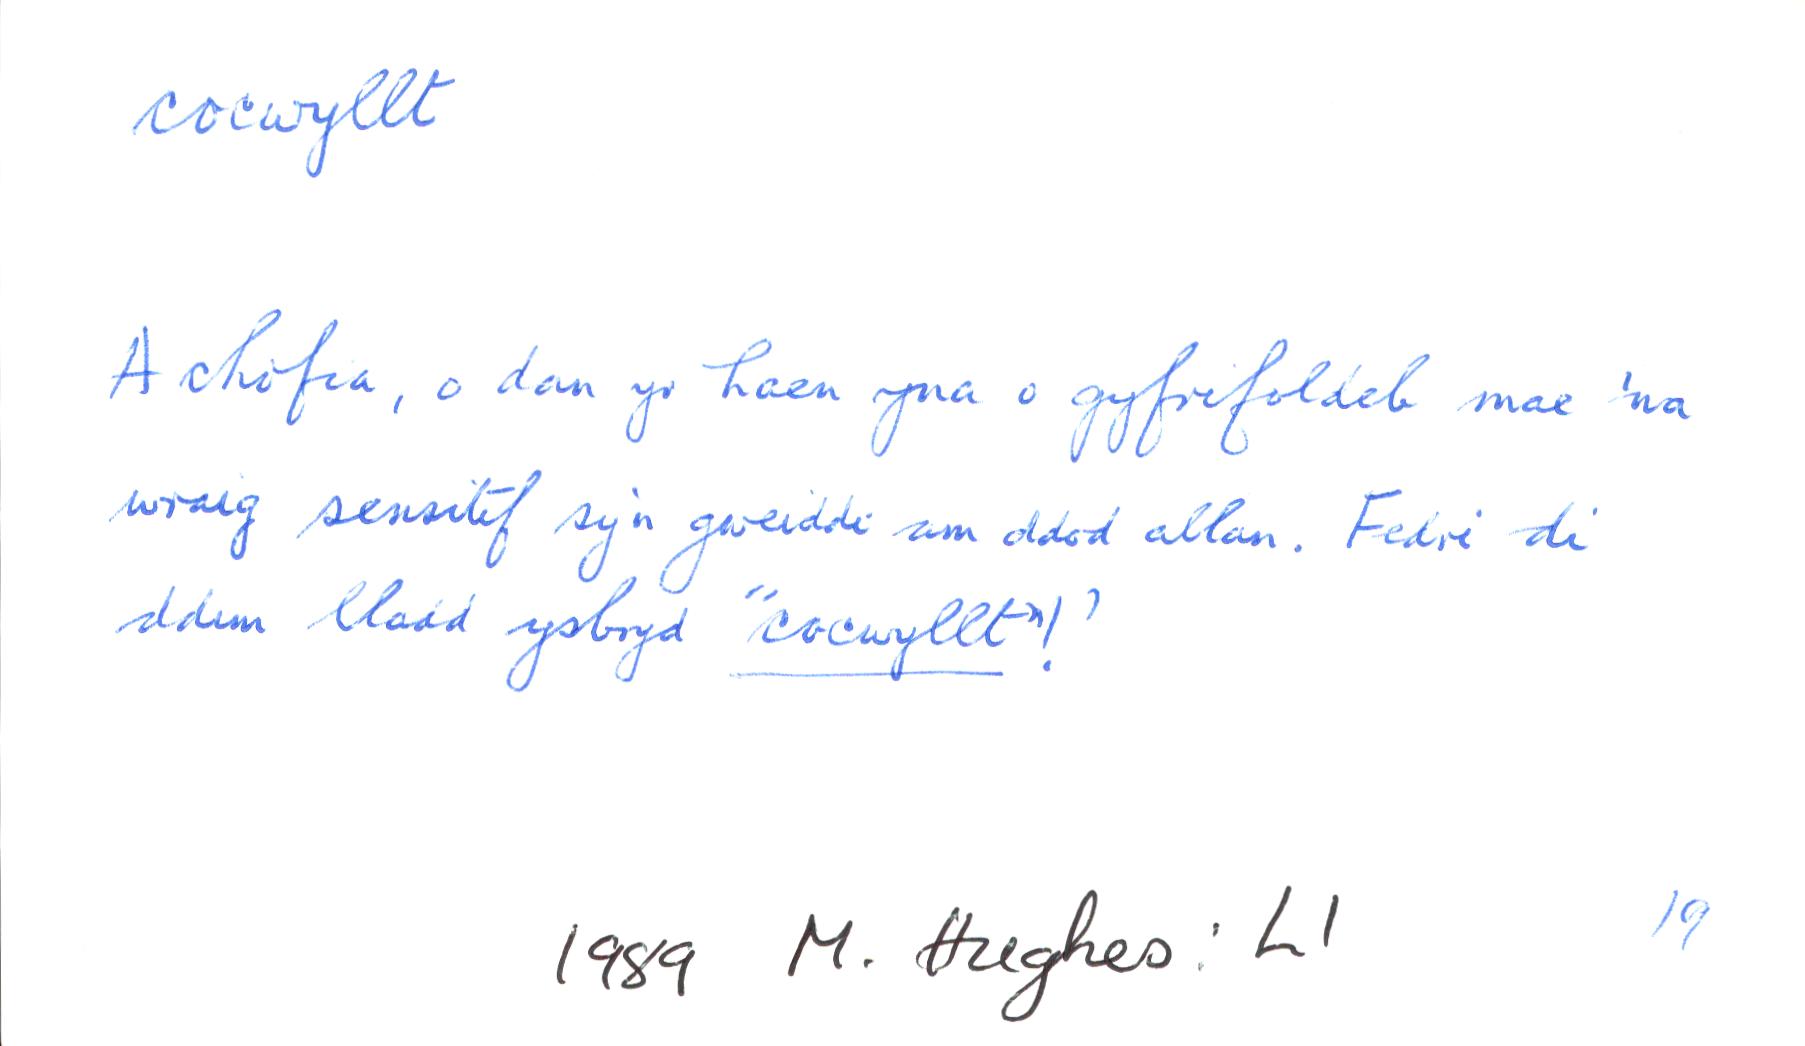 cocwyllt
A chofia, o dan yr haen yna o gyfrifoldeb mae 'na
wraig sensitif sy'n gweiddi am ddod allan. Fedri di
ddim lladd ysbryd "cocwyllt"!'
1989 M. Hughes: Ll
19